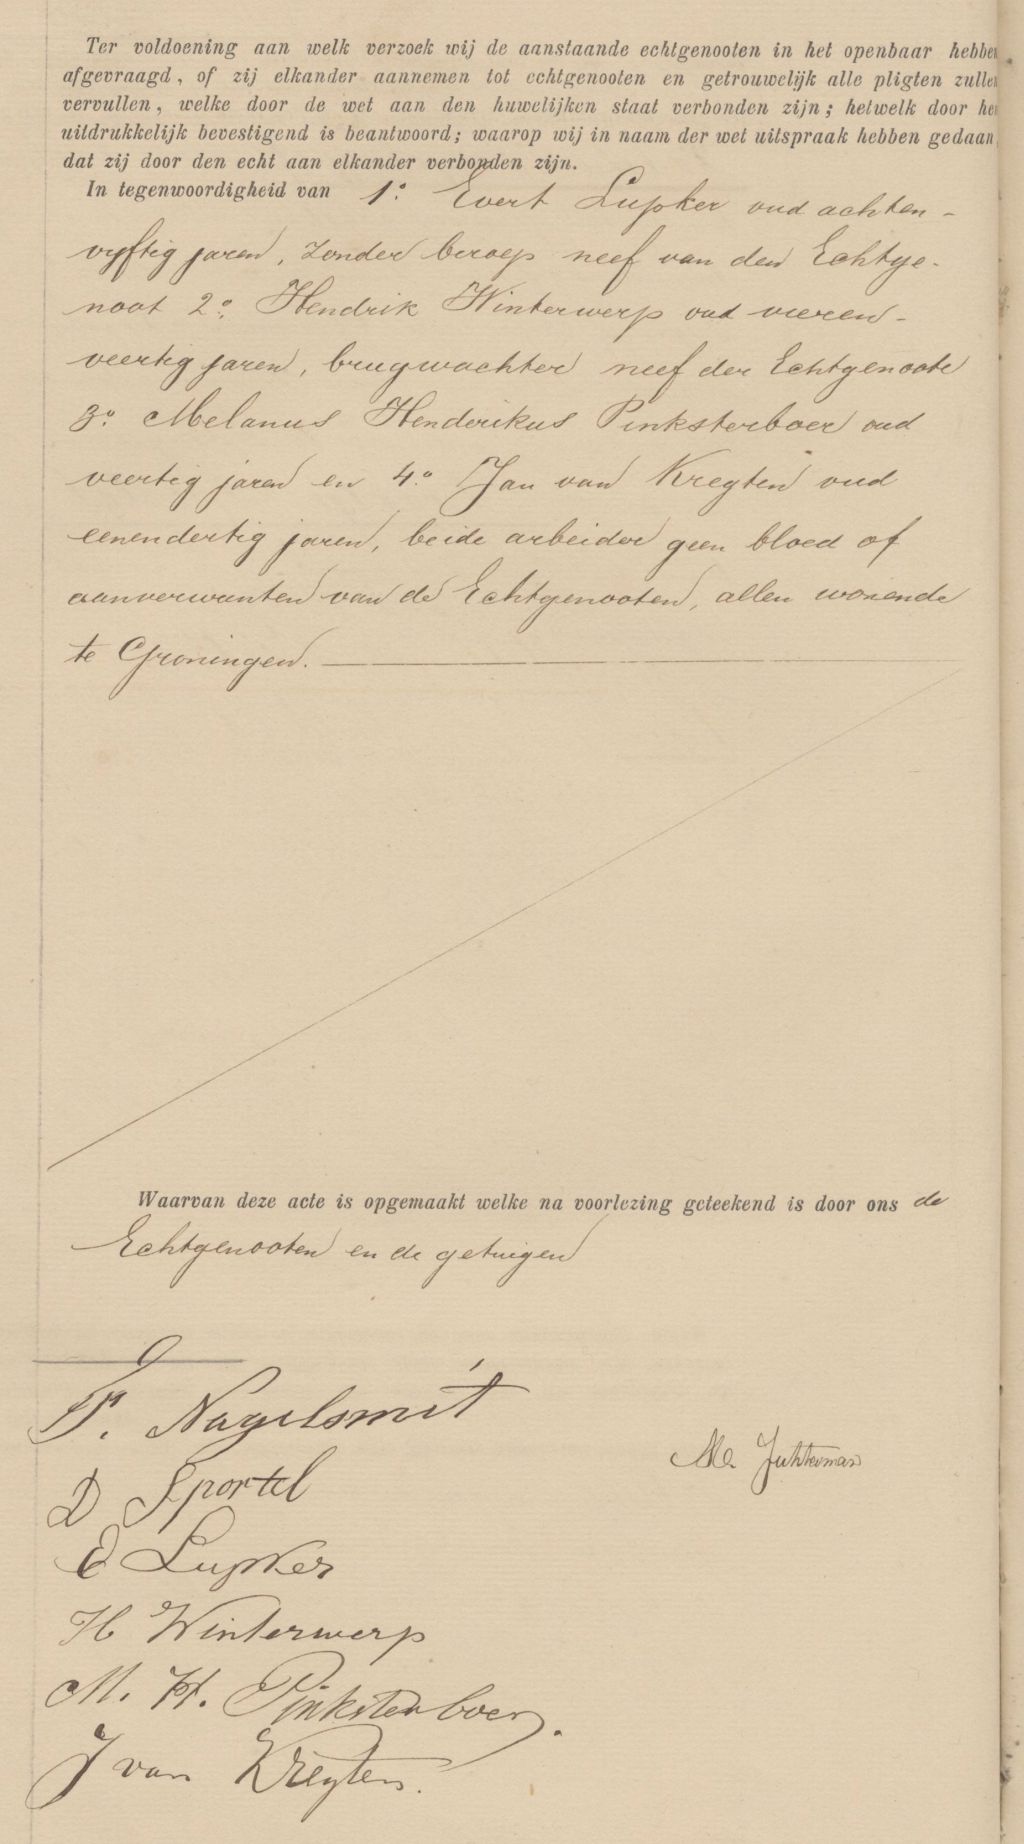 Ter voldoening aan welk verzoek wij de aanstaande echtgenooten in het openbaar hebben
afgevraagd, of zij elkander aannemen tot echtgenooten en getrouwelijk alle pligten zullen
vervullen, welke door de wet aan den huwelijken staat verbonden zijn; hetwelk door hen
uitdrukkelijk bevestigend is beantwoord; waarop wij in naam der wet uitspraak hebben gedaan,
dat zij door den echt aan elkander verbonden zijn.
In tegenwoordigheid van 1o. Evert Lupker oud achten-
vyftig jaren, zonder beroep neef van den Echtge-
noot 2o. Hendrik Winterwerp oud vieren-
veertig jaren, brugwachter neef der Echtgenoote
3o. Melanus Henderikus Pinksterboer oud
veertig jaren en 4.o Jan van Kregten oud
eenendertig jaren, beide arbeider geen bloed of
aanverwanten van de Echtgenooten, allen wonende
te Groningen.
Waarvan deze acte is opgemaakt welke na voorlezing geteekend is door ons de
Echtgenooten en de getuigen
Nagelsmit
D Sportel
E Lupker
H Winterwerp
M. H. Pinksterboer.
J van Kregten.